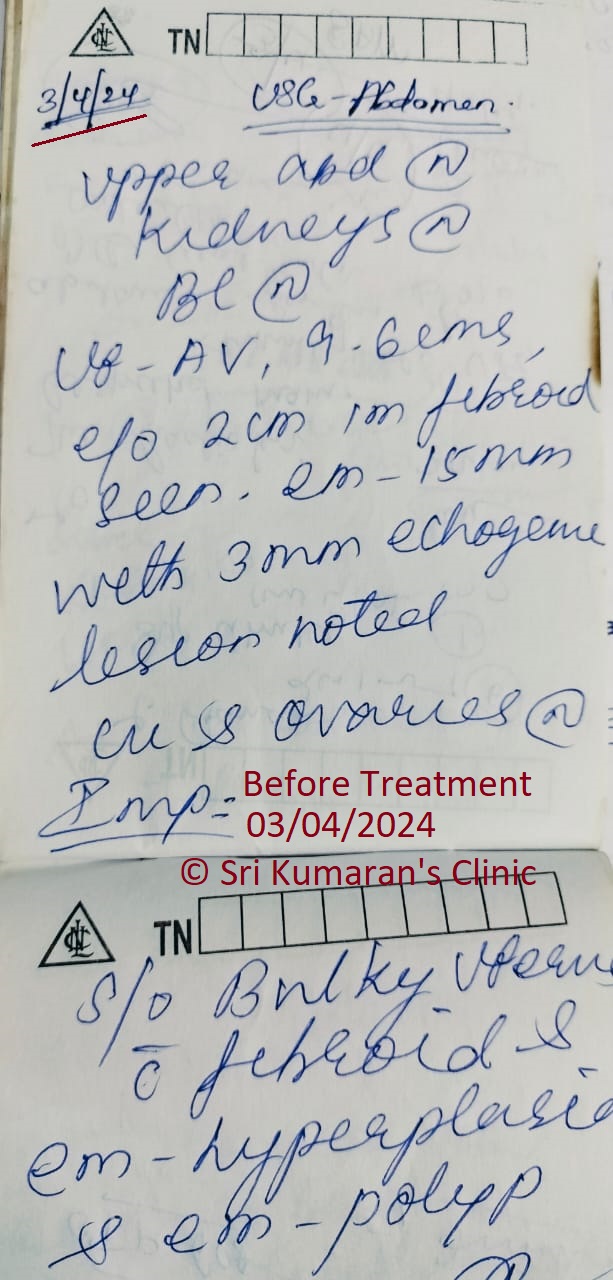 TN
3/4/24 USG-Abdomen.
upper abd (n)
kidneys (n)
Bl (n)
Ut - AV, 9.6cms,
e/o 2cm im fibroid
seen. em - 15mm
with 3mm echogenic
lesion noted
cx & ovaries (n)
Imp:-
Before Treatment
03/04/2024
© Sri Kumaran's Clinic
TN
S/o Bulky Uterus
c̄ fibroid &
em - hyperplasia
& em - polyp